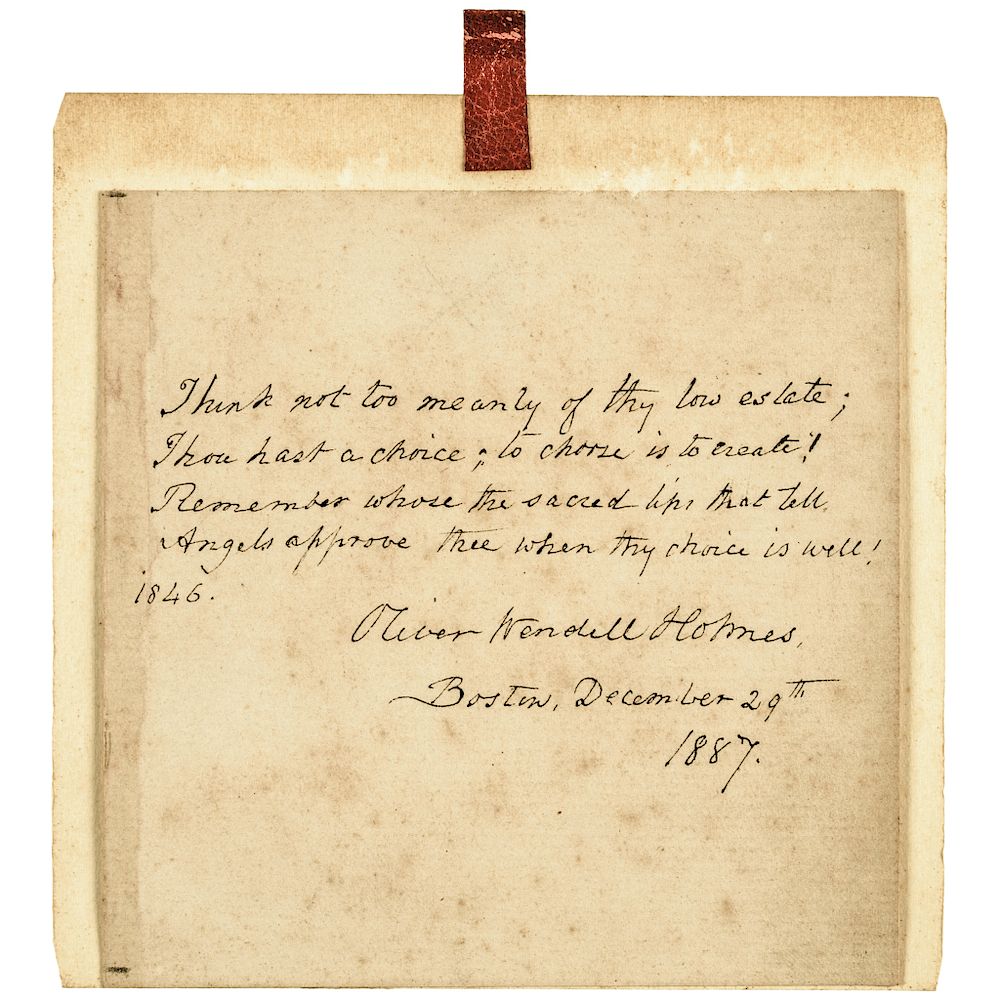 Think not too meanly of thy low estate;
Thou hast a choice; to choose is to create!
Remember whose the sacred lips that tell,
Angels approve thee when thy choice is well!
1846.
Oliver Wendell Holmes,
Boston, December 29th
1887.